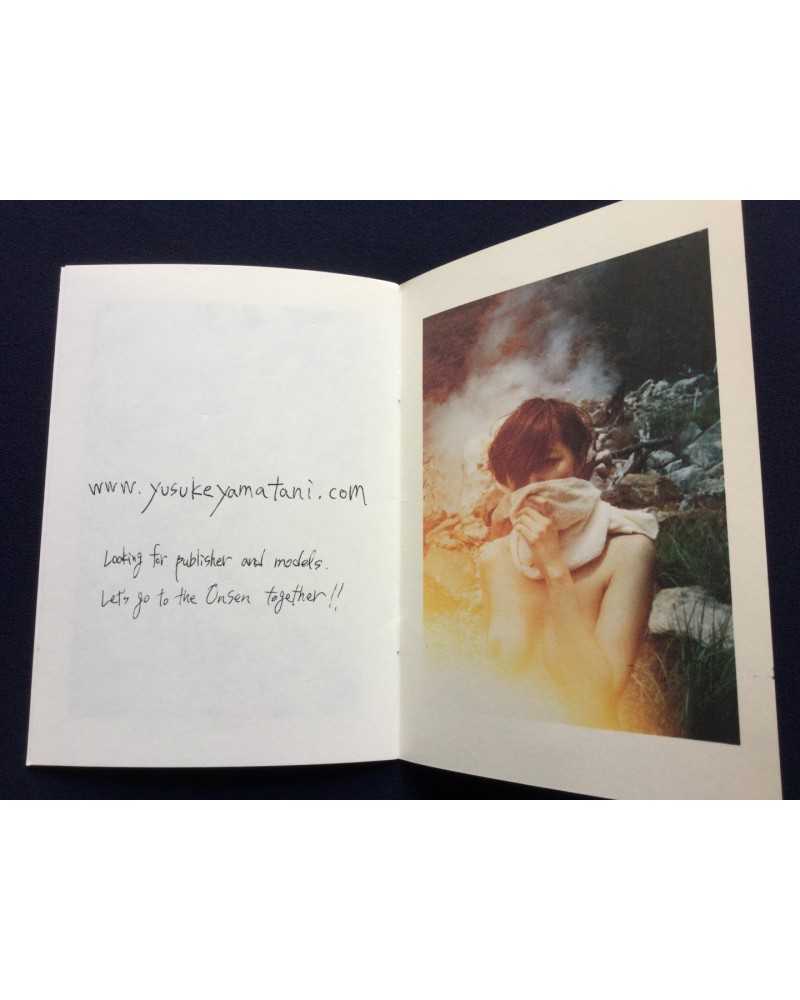 www.yusukeyamatani.com
Looking for publisher and models.
Let's go to the Onsen together!!